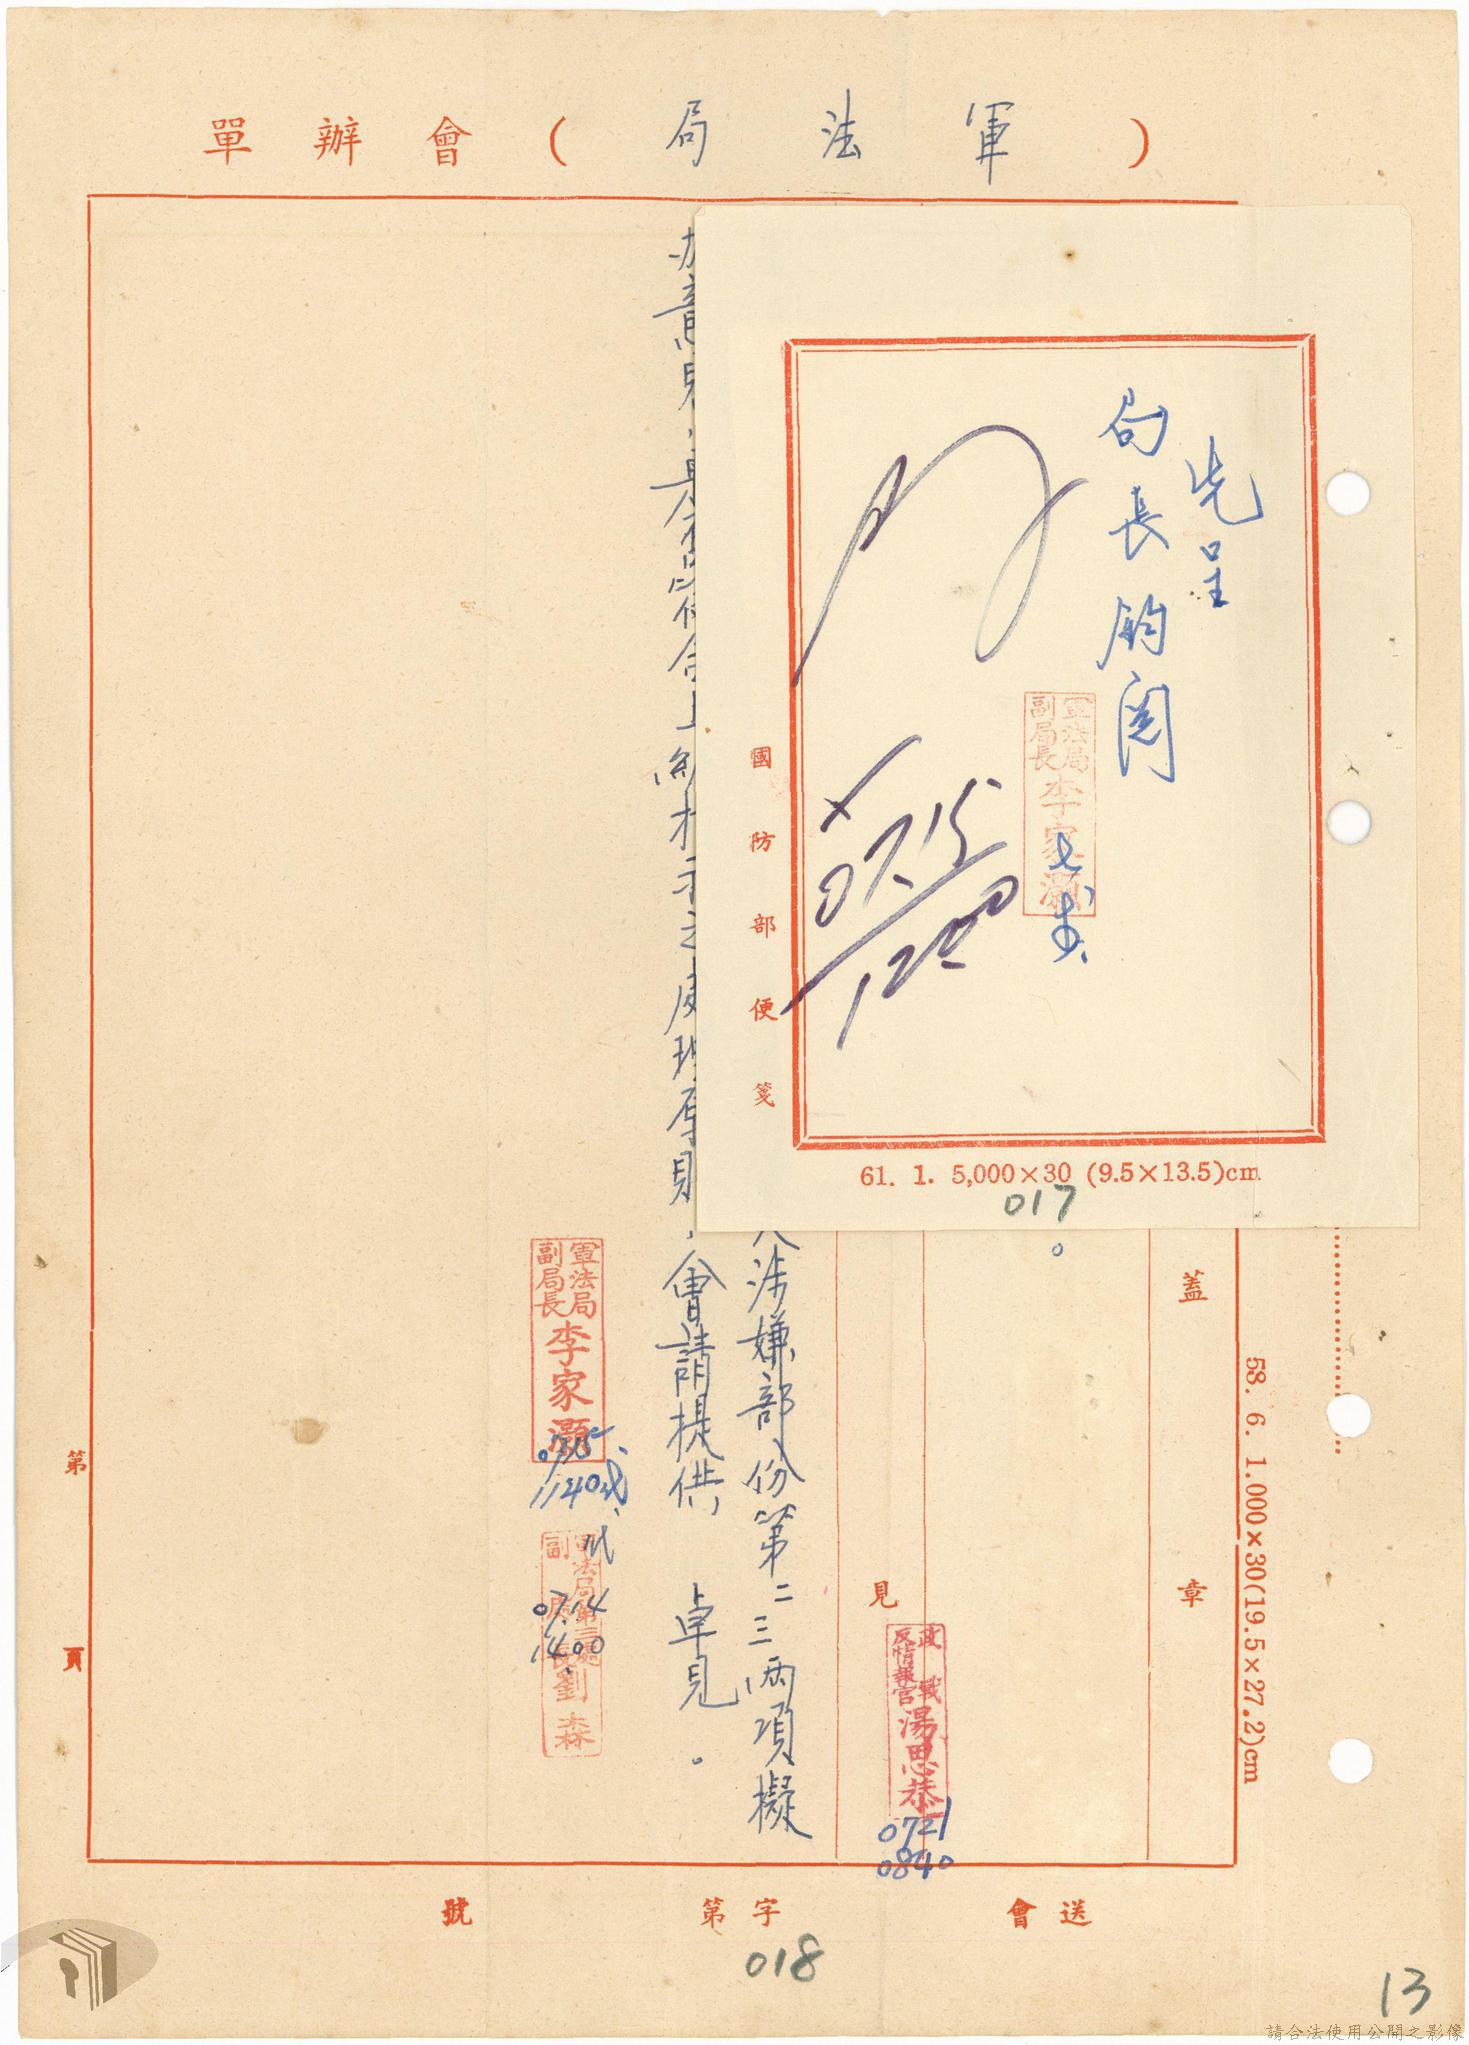 (軍法局)會辦單
先呈
局長鈞閱
軍法局
副局長
李家灝
0715
1200
國防部便箋
61. 1. 5,000×30 (9.5×13.5)cm
017
。
蓋章
58. 6. 1.000×30(19.5×27.2)cm
見
政戰
反情報官
湯思恭
0721
0840
涉嫌部份第二三兩項擬
辦意見,是否符合上級指示之處理原則,會請提供 卓見。
軍法局
副局長
李家灝
0715
1140
軍法局第三處
副處長
劉森
0714
1400
第頁
送會 字第 號
018
13
請合法使用公開之影像